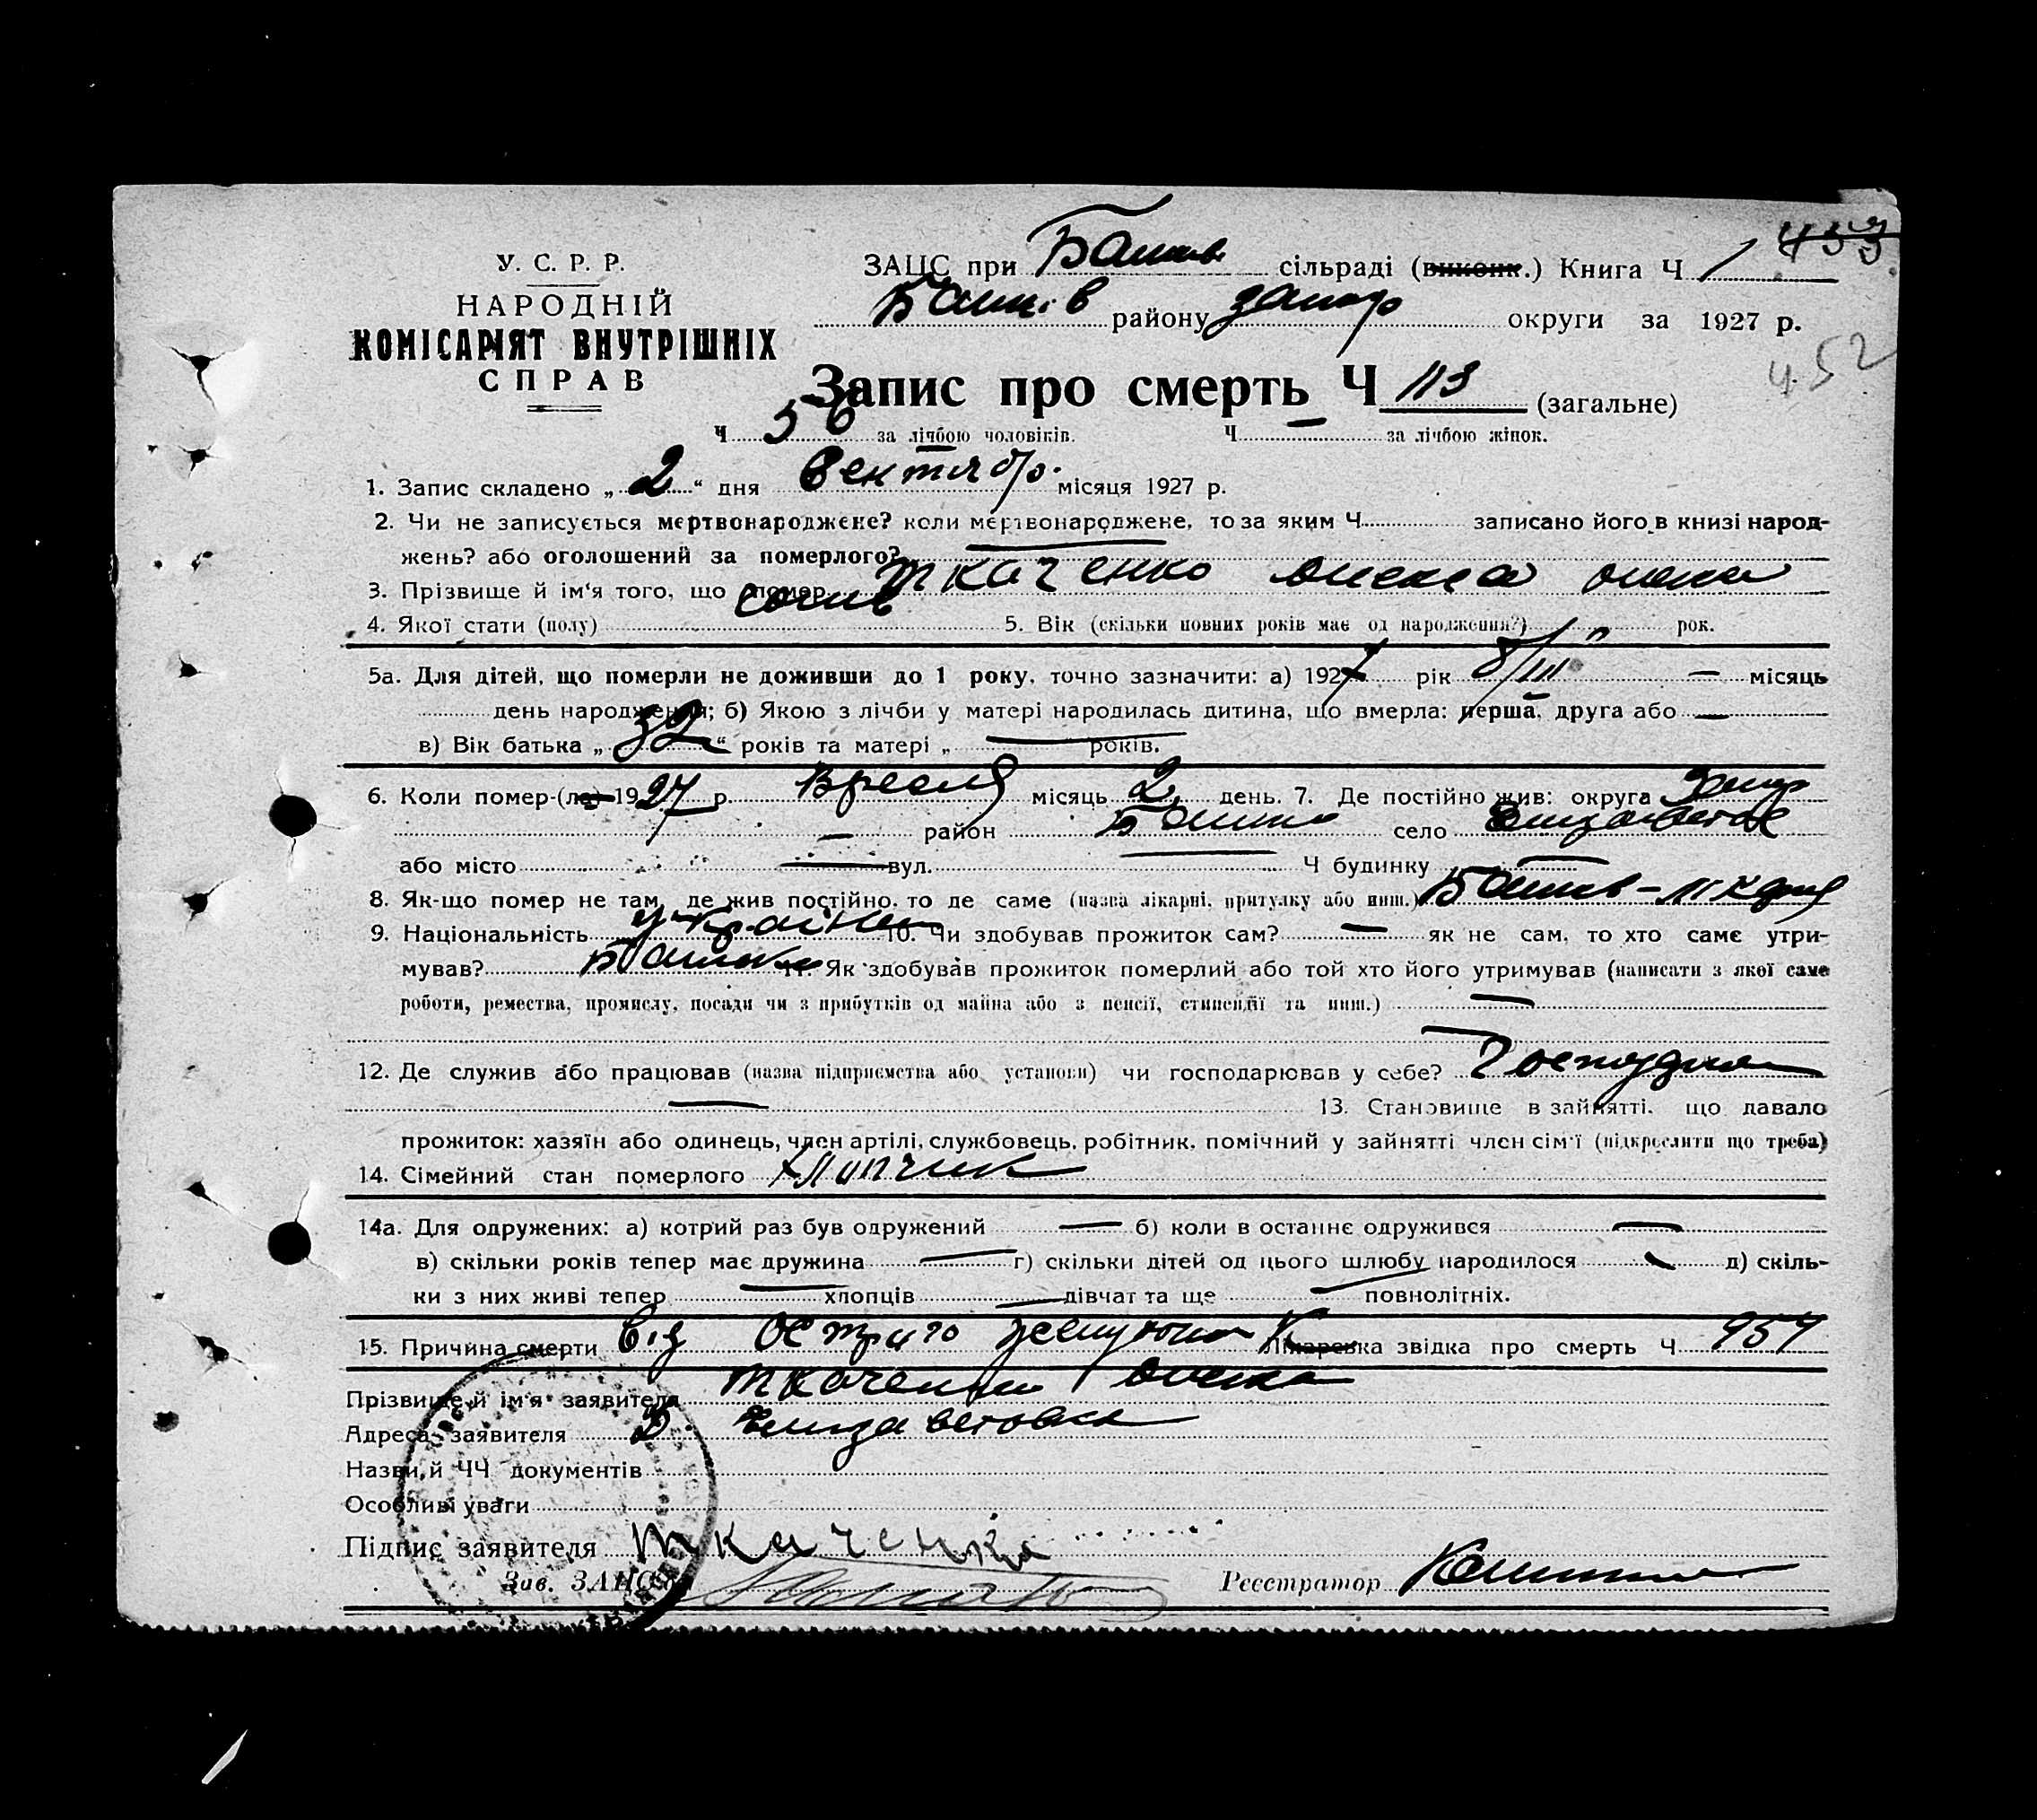 453
У. С. Р. Р.
НАРОДНІЙ
КОМІСАРІЯТ ВНУТРІШНІХ
СПРАВ
ЗАЦС при сільраді (виконк.) Книга Ч 1
району Запор округи за 1927 р.
452
Запис про смерть Ч 113 (загальне)
Ч 56 за лічбою чоловіків. Ч — за лічбою жінок.
1. Запис складено „ 2 “ дня Сентябр. місяця 1927 р.
2. Чи не записується мертвонароджене? коли мертвонароджене, то за яким Ч записано його в книзі народ-
жень? або оголошений за померлого? —
3. Прізвище й ім'я того, що помер Ткаченко Олекса
4. Якої стати (полу) 5. Вік (скільки повних років має од народження?) рок.
5а. Для дітей, що померли не доживши до 1 року, точно зазначити: а) 1927 рік 8/III — місяць
день народження; б) Якою з лічби у матері народилась дитина, що вмерла: перша, друга або —
в) Вік батька „ 32 “ років та матері „ — років.
6. Коли помер-(ла) 1927 р. Вресня місяць 2 день. 7. Де постійно жив: округа Запор
— район село
або місто — вул. — Ч будинку —
8. Як-що помер не там, де жив постійно, то де саме (назва лікарні, притулку або инш.)
9. Національність Українец 10. Чи здобував прожиток сам? — як не сам, то хто саме утри-
мував? Батько 11. Як здобував прожиток померлий або той хто його утримував (написати з якої саме
роботи, ремества, промислу, посади чи з прибутків од майна або з пенсії, стипендії та инш.) —
12. Де служив або працював (назва підприємства або установи) чи господарював у себе?
— 13. Становище в зайнятті, що давало
прожиток: хазяїн або одинець, член артілі, службовець, робітник, помічний у зайнятті член сім'ї (підкреслити що треба)
14. Сімейний стан померлого Хлопчик
14а. Для одружених: а) котрий раз був одружений — б) коли в останнє одружився —
в) скільки років тепер має дружина — г) скільки дітей од цього шлюбу народилося — д) скіль-
ки з них живі тепер — хлопців — дівчат та ще — повнолітніх.
15. Причина смерти Від острого Лікаревка звідка про смерть Ч 957
Прізвище й ім'я заявителя Ткаченко
Адреса заявителя Елизаветовка
Назви й ЧЧ документів
Особливі уваги
Підпис заявителя Ткаченко
Зав. ЗАЦС'ом Реєстратор